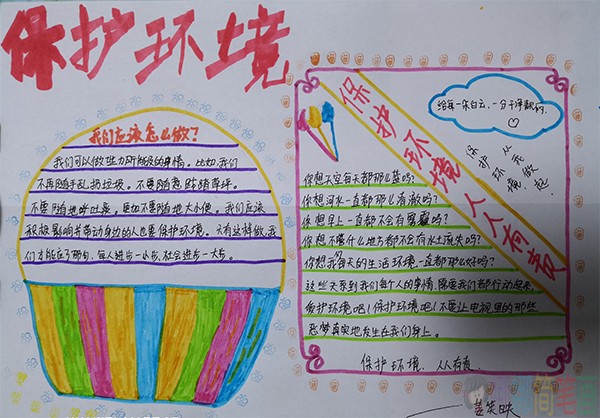 保护环境
我们应该怎么做?
我们可以做些力所能及的事情。比如,我们
不再随手乱扔垃圾。不要随意踩踏草坪。
不要随地吐痰。更加不要随地大小便。我们应该
积极影响并带动身边的人也要保护环境。只有这样做,我
们才能应了那句,每人进步一小步,社会进步一大步。
保护环境 人人有责
给每一朵白云,一分干净
保护环境
从我做起
你想天空每天都那么蓝吗?
你想河水一直都那么清澈吗?
你想早上一直都不会有雾霾吗?
你想不管什么地方都不会有水土流失吗?
你想我每天的生活环境一直都那么好吗?
这些关系到我们每个人的事情,需要我们都行动起来,
爱护环境吧!保护环境吧!不要让电视里的那些
恶梦真实地发生在我们身上。
保护环境,人人有责